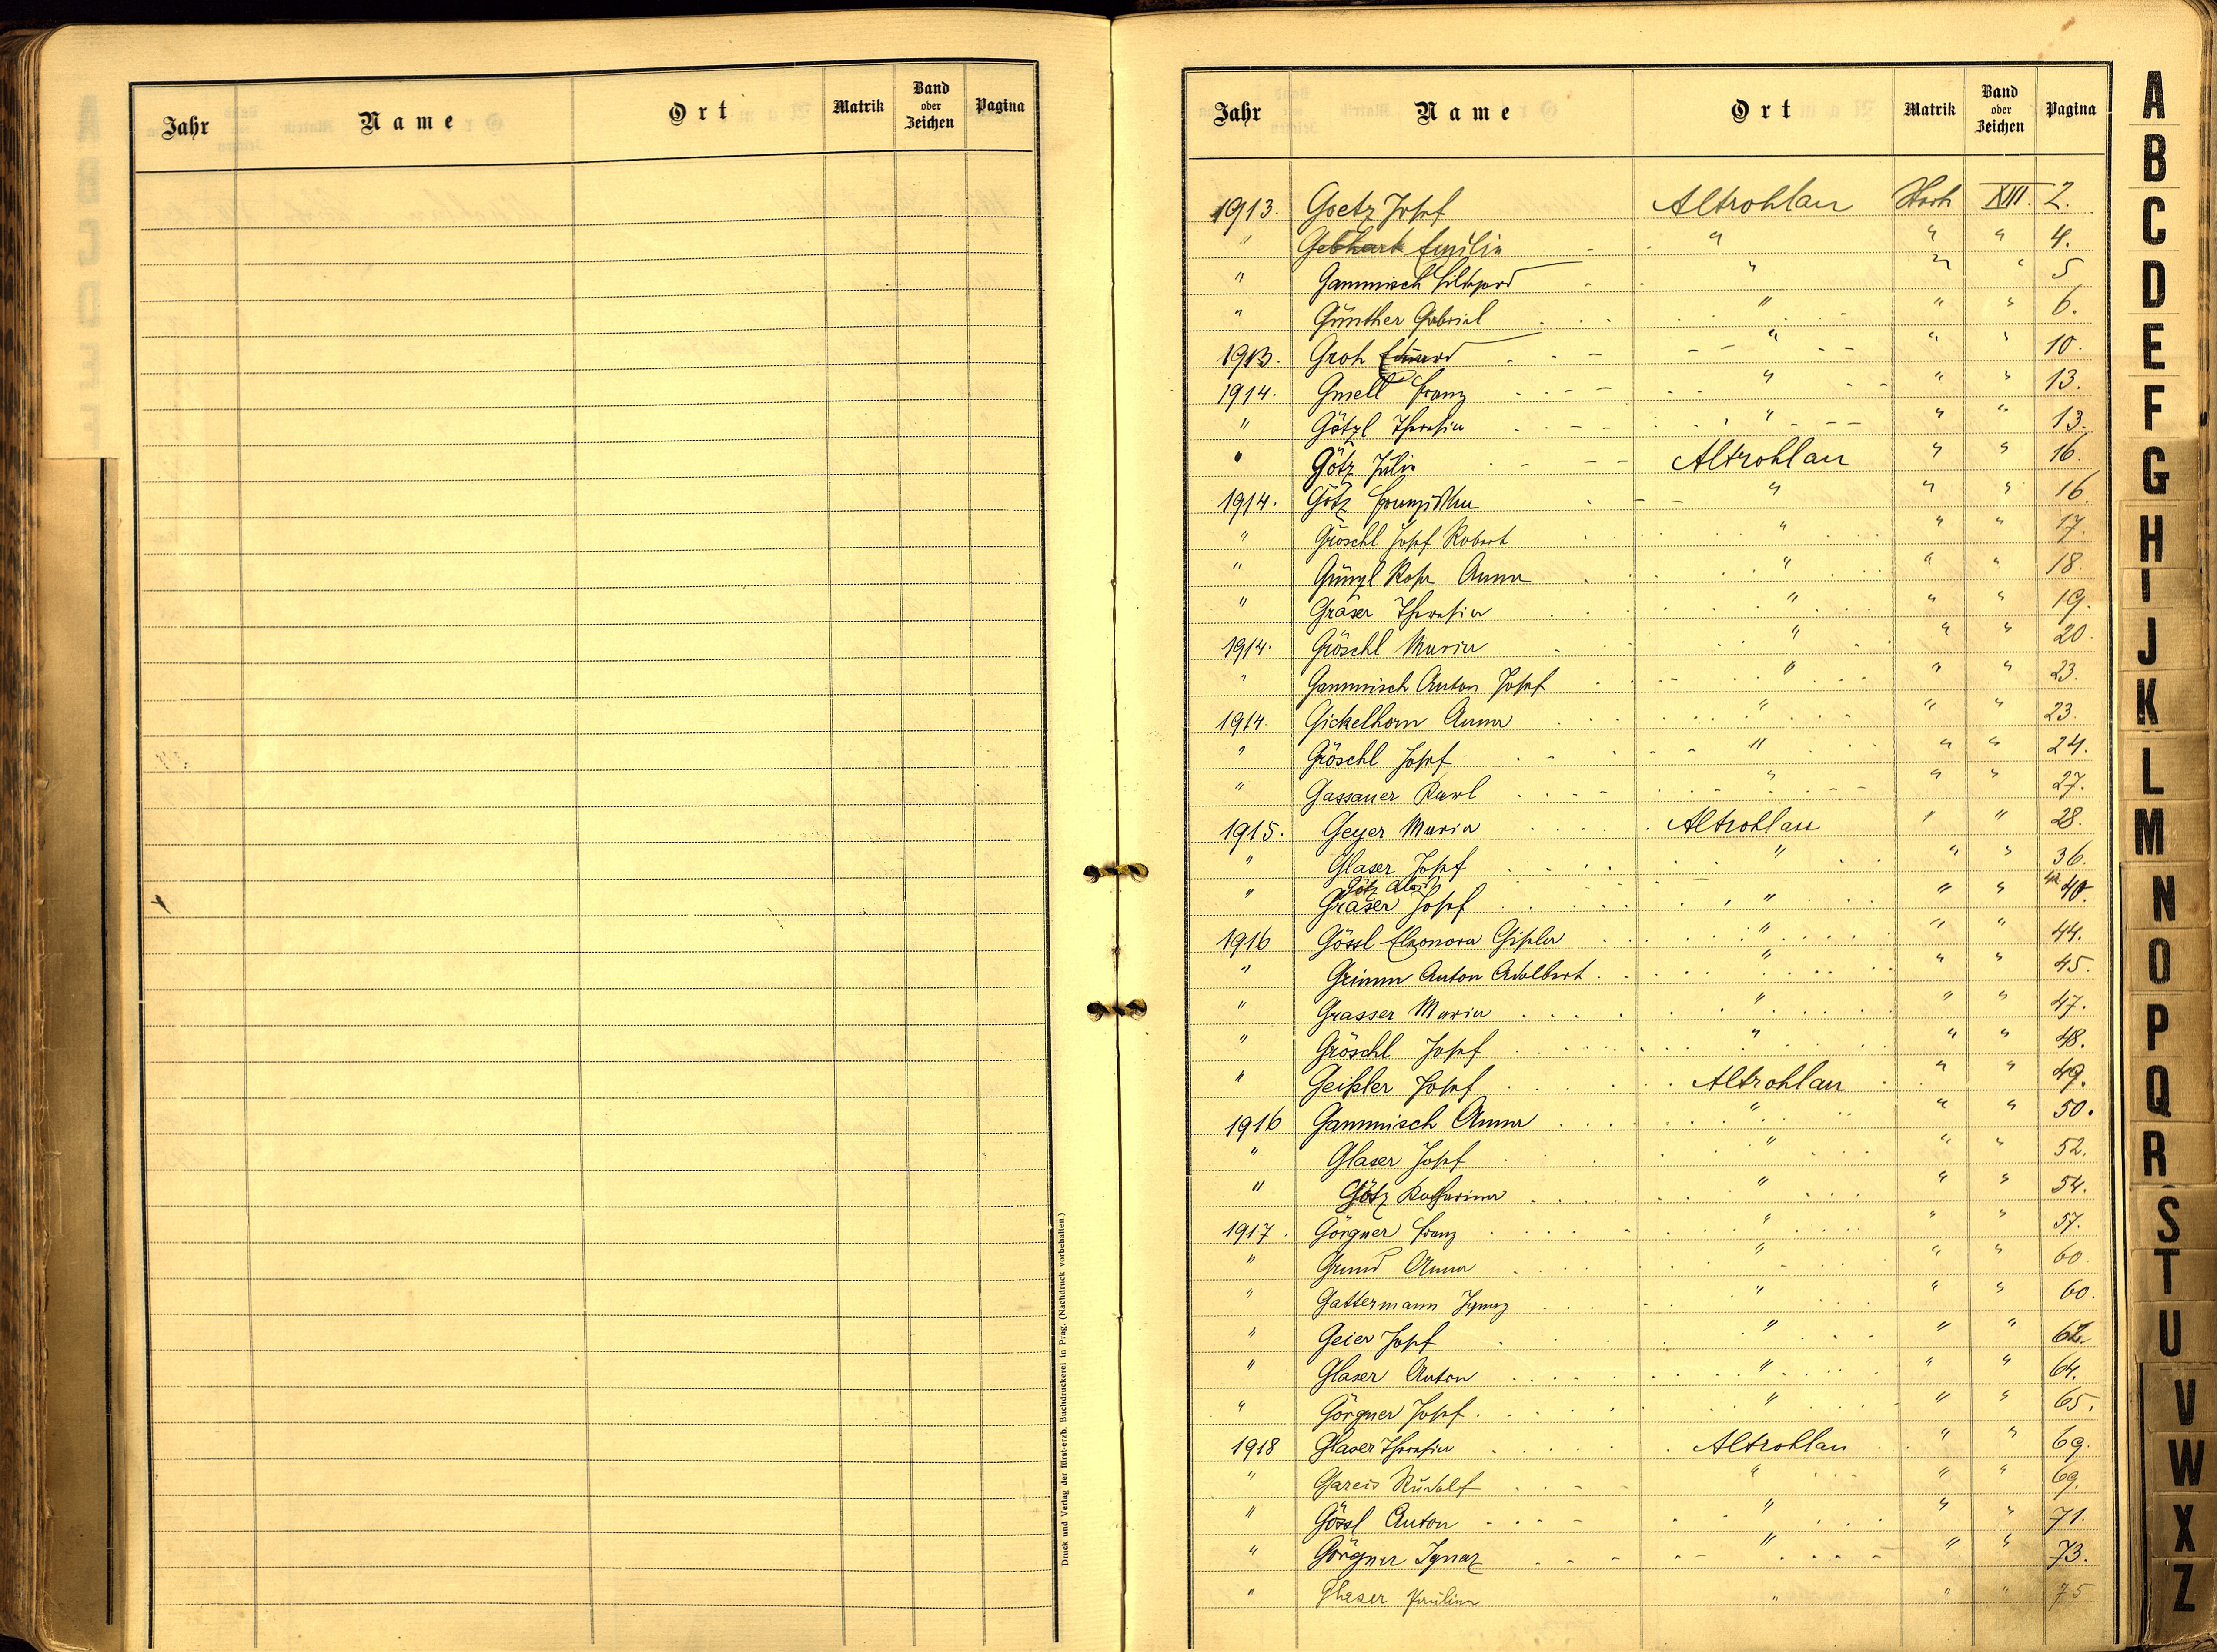 Jahr Name Ort Matrik Band oder Zeichen Pagina
Druck und Verlag der fürst-erzb. Buchdruckerei in Prag. (Nachdruck vorbehalten.)
Jahr Name Ort Matrik Band oder Zeichen Pagina
1913. Goetz Josef Altrohlau XIII. 2.
" Gebhart Emilie " " " 4.
" Gammisch " " " 5
" Günther Gabriel " " " 6.
1913. Groh Eduard " " " 10.
1914. Gmell Franz " " " 13.
" Götzl Theresia " " " 13.
" Götz Julie Altrohlau " " 16.
1914. Götz Franziska " " " 16.
" Gröschl Josef Robert " " " 17.
" Günzl Rosa Anna " " " 18.
" Gräser Theresia " " " 19.
1914. Gröschl Maria " " " 20.
" Gammisch Anton Josef " " " 23.
1914. Gickelhorn Anna " " " 23.
" Gröschl Josef " " " 24.
" Gassauer Karl " " " 27.
1915. Geyer Maria Altrohlau " " 28.
" Glaser Josef " " " 36.
Götz Alois
" Gräser Josef " " " 40.
1916 Gössl Eleonora Gisela " " " 44.
" Grimm Anton Adalbert " " " 45.
" Grasser Maria " " " 47.
" Gröschl Josef " " " 48.
" Geißler Josef Altrohlau " " 49.
1916 Gammisch Anna " " " 50.
" Glaser Josef " " " 52.
" Götz Katharina " " " 54.
1917. Görgner Franz " " " 57.
" Grund Anna " " " 60.
" Gattermann Ignaz " " " 60.
" Geier Josef " " " 62.
" Glaser Anton " " " 64.
" Görgner Josef " " " 65.
1918 Glaser Theresia Altrohlau " " 69.
" Gareis Rudolf " " " 69.
" Gössl Anton " " " 71.
" Görgner Ignaz " " " 73.
" Glaser Paulina " " " 75
A
B
C
D
E
F
G
H
I
J
K
L
M
N
O
P
Q
R
S
T
U
V
W
X
Z